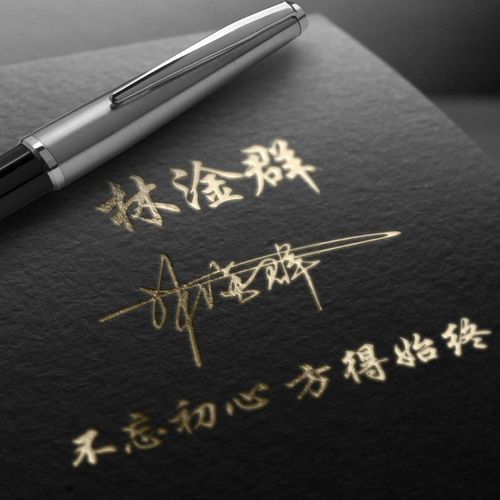 林淦群
林淦群
不忘初心 方得始终